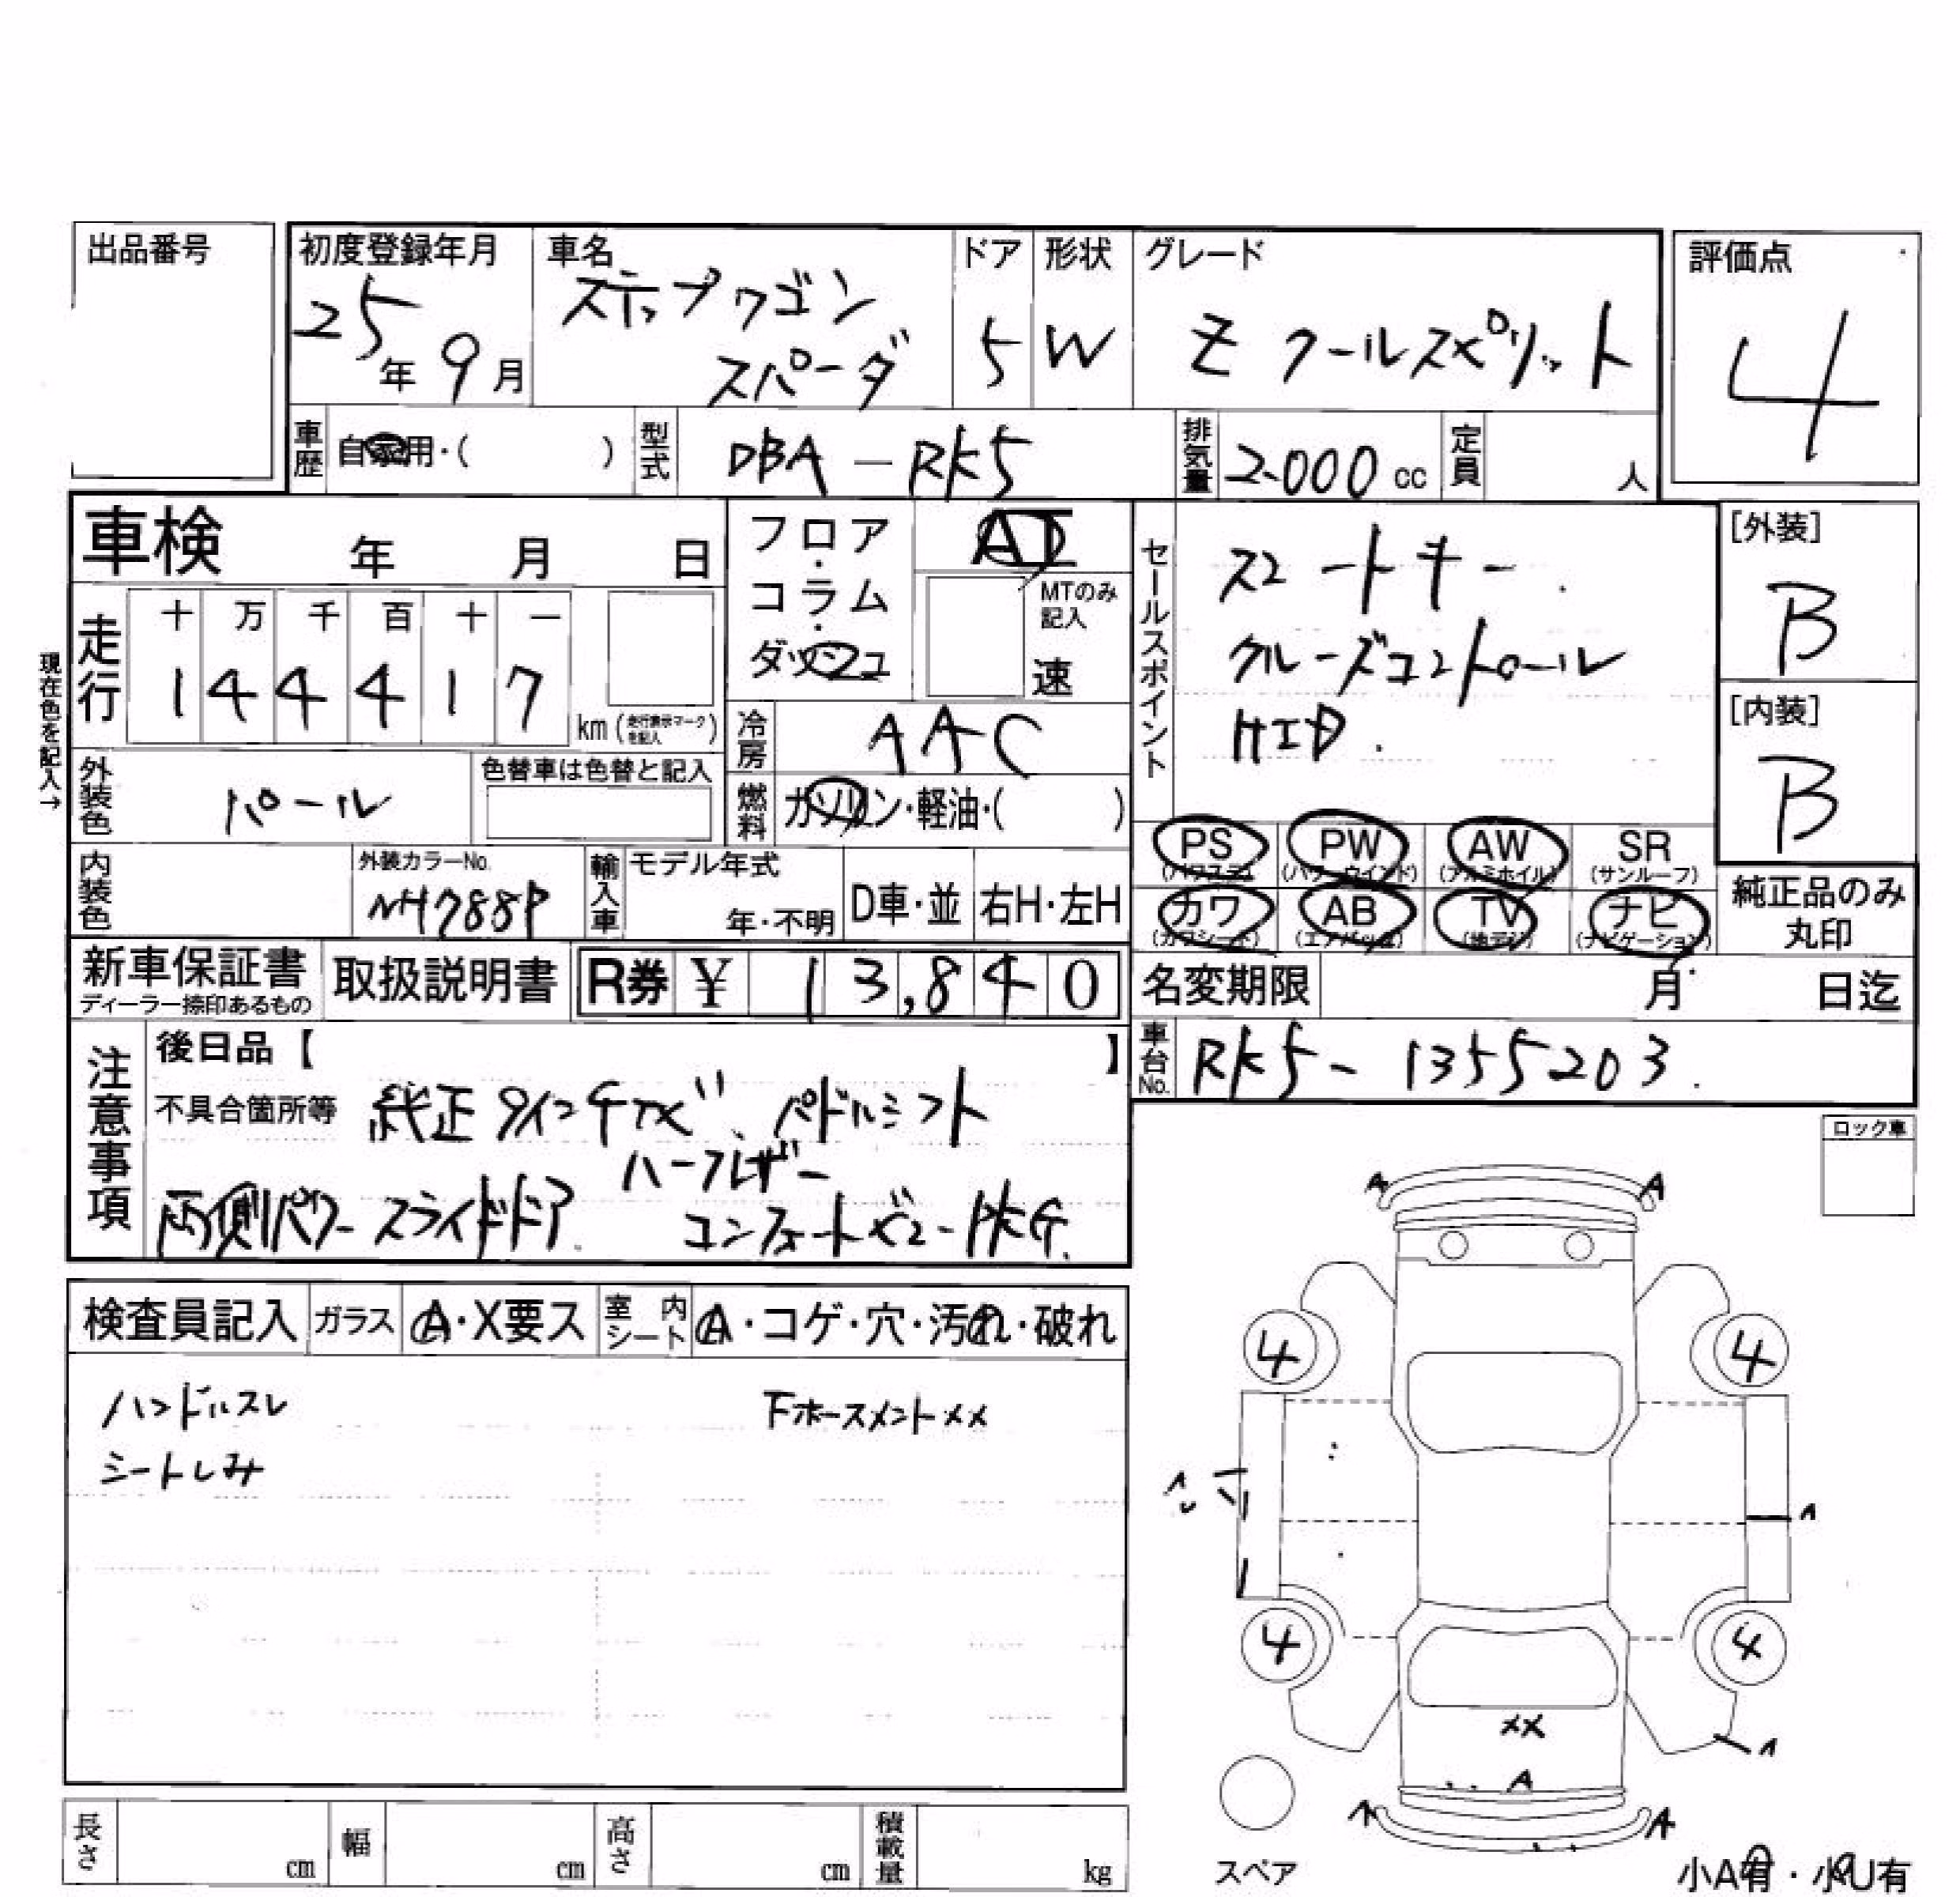 出品番号
初度登録年月
25年 9月
車名
ステップワゴン
スパーダ
ドア
5
形状
W
グレード
Z クールスピリット
評価点
4
車歴
自家用・( )
型式
DBA-RK5
排気量
2000 cc
定員
人
車検 年 月 日
フロア・コラム・ダッシュ
AT
MTのみ記入
速
セールスポイント
スマートキー
クルーズコントロール
HID
[外装]
B
[内装]
B
現在色を記入→
走行
十 万 千 百 十 一
1 4 4 4 1 7
km (走行表示マークを記入)
冷房
AAC
外装色
パール
色替車は色替と記入
燃料
ガソリン・軽油・( )
PS
(パワステ)
PW
(パワーウインド)
AW
(アルミホイル)
SR
(サンルーフ)
カワ
(カワシート)
AB
(エアバッグ)
TV
(地デジ)
ナビ
(ナビゲーション)
純正品のみ
丸印
内装色
外装カラーNo.
NH788P
輸入車
モデル年式
年・不明
D車・並
右H・左H
新車保証書
ディーラー捺印あるもの
取扱説明書
R券 ¥ 13,840
名変期限 月 日迄
車台No.
RK5-1355203
注意事項
後日品【 】
不具合箇所等 純正9インチナビ パドルシフト
ハーフレザー
両側パワースライドドア コンフォートビューPKG.
ロック車
検査員記入
ガラス
A・X要ス
室内シート
A・コゲ・穴・汚れ・破れ
ハンドルスレ
シートしみ
下ホースメントXX
A A
4 4
A
4 4
XX
A
A
A A
スペア
小A有・小U有
長さ cm
幅 cm
高さ cm
積載量 kg